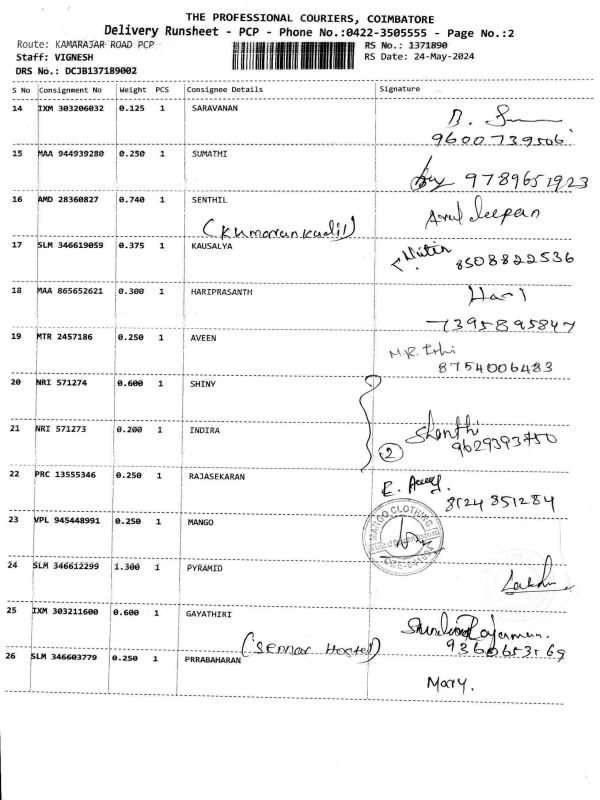 THE PROFESSIONAL COURIERS, COIMBATORE
Delivery Runsheet - PCP - Phone No.:0422-3505555 - Page No.:2
Route: KAMARAJAR ROAD PCP RS No.: 1371890
Staff: VIGNESH RS Date: 24-May-2024
DRS No.: DCJB137189002
S No Consignment No Weight PCS Consignee Details Signature
14 IXM 303206032 0.125 1 SARAVANAN
9600739506
15 MAA 944939280 0.250 1 SUMATHI
9789651923
16 AMD 28360827 0.740 1 SENTHIL
(Kumarankudil)
17 SLM 346619059 0.375 1 KAUSALYA
8508822536
18 MAA 865652621 0.300 1 HARIPRASANTH Hari
7395895847
19 MTR 2457186 0.250 1 AVEEN
8754006483
20 NRI 571274 0.600 1 SHINY
21 NRI 571273 0.200 1 INDIRA Shanthi
2 9629393750
22 PRC 13555346 0.250 1 RAJASEKARAN
8124851284
23 VPL 945448991 0.250 1 MANGO
MANGO CLOTHING
24 SLM 346612299 1.300 1 PYRAMID
25 IXM 303211600 0.600 1 GAYATHIRI
9360653169
26 SLM 346603779 0.250 1 PRRABAHARAN
Mary.